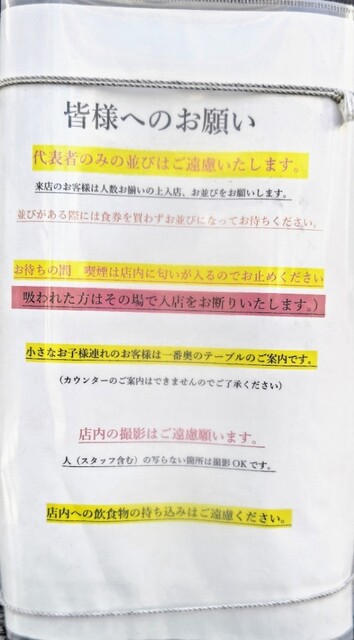 皆様へのお願い
代表者のみの並びはご遠慮いたします。
来店のお客様は人数お揃いの上入店、お並びをお願いします。
並びがある際には食券を買わずお並びになってお待ちください。
お待ちの間　喫煙は店内に匂いが入るのでお止めください
吸われた方はその場で入店をお断りいたします。）
小さなお子様連れのお客様は一番奥のテーブルのご案内です。
（カウンターのご案内はできませんのでご了承ください）
店内の撮影はご遠慮願います。
人（スタッフ含む）の写らない箇所は撮影 OK です。
店内への飲食物の持ち込みはご遠慮ください。